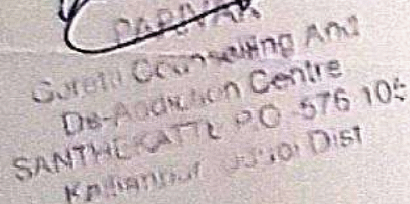 PARIVAR
Counselling And
De-Addiction Centre
SANTHEKATTE P.O -576 105
Kallianpur Udupi Dist